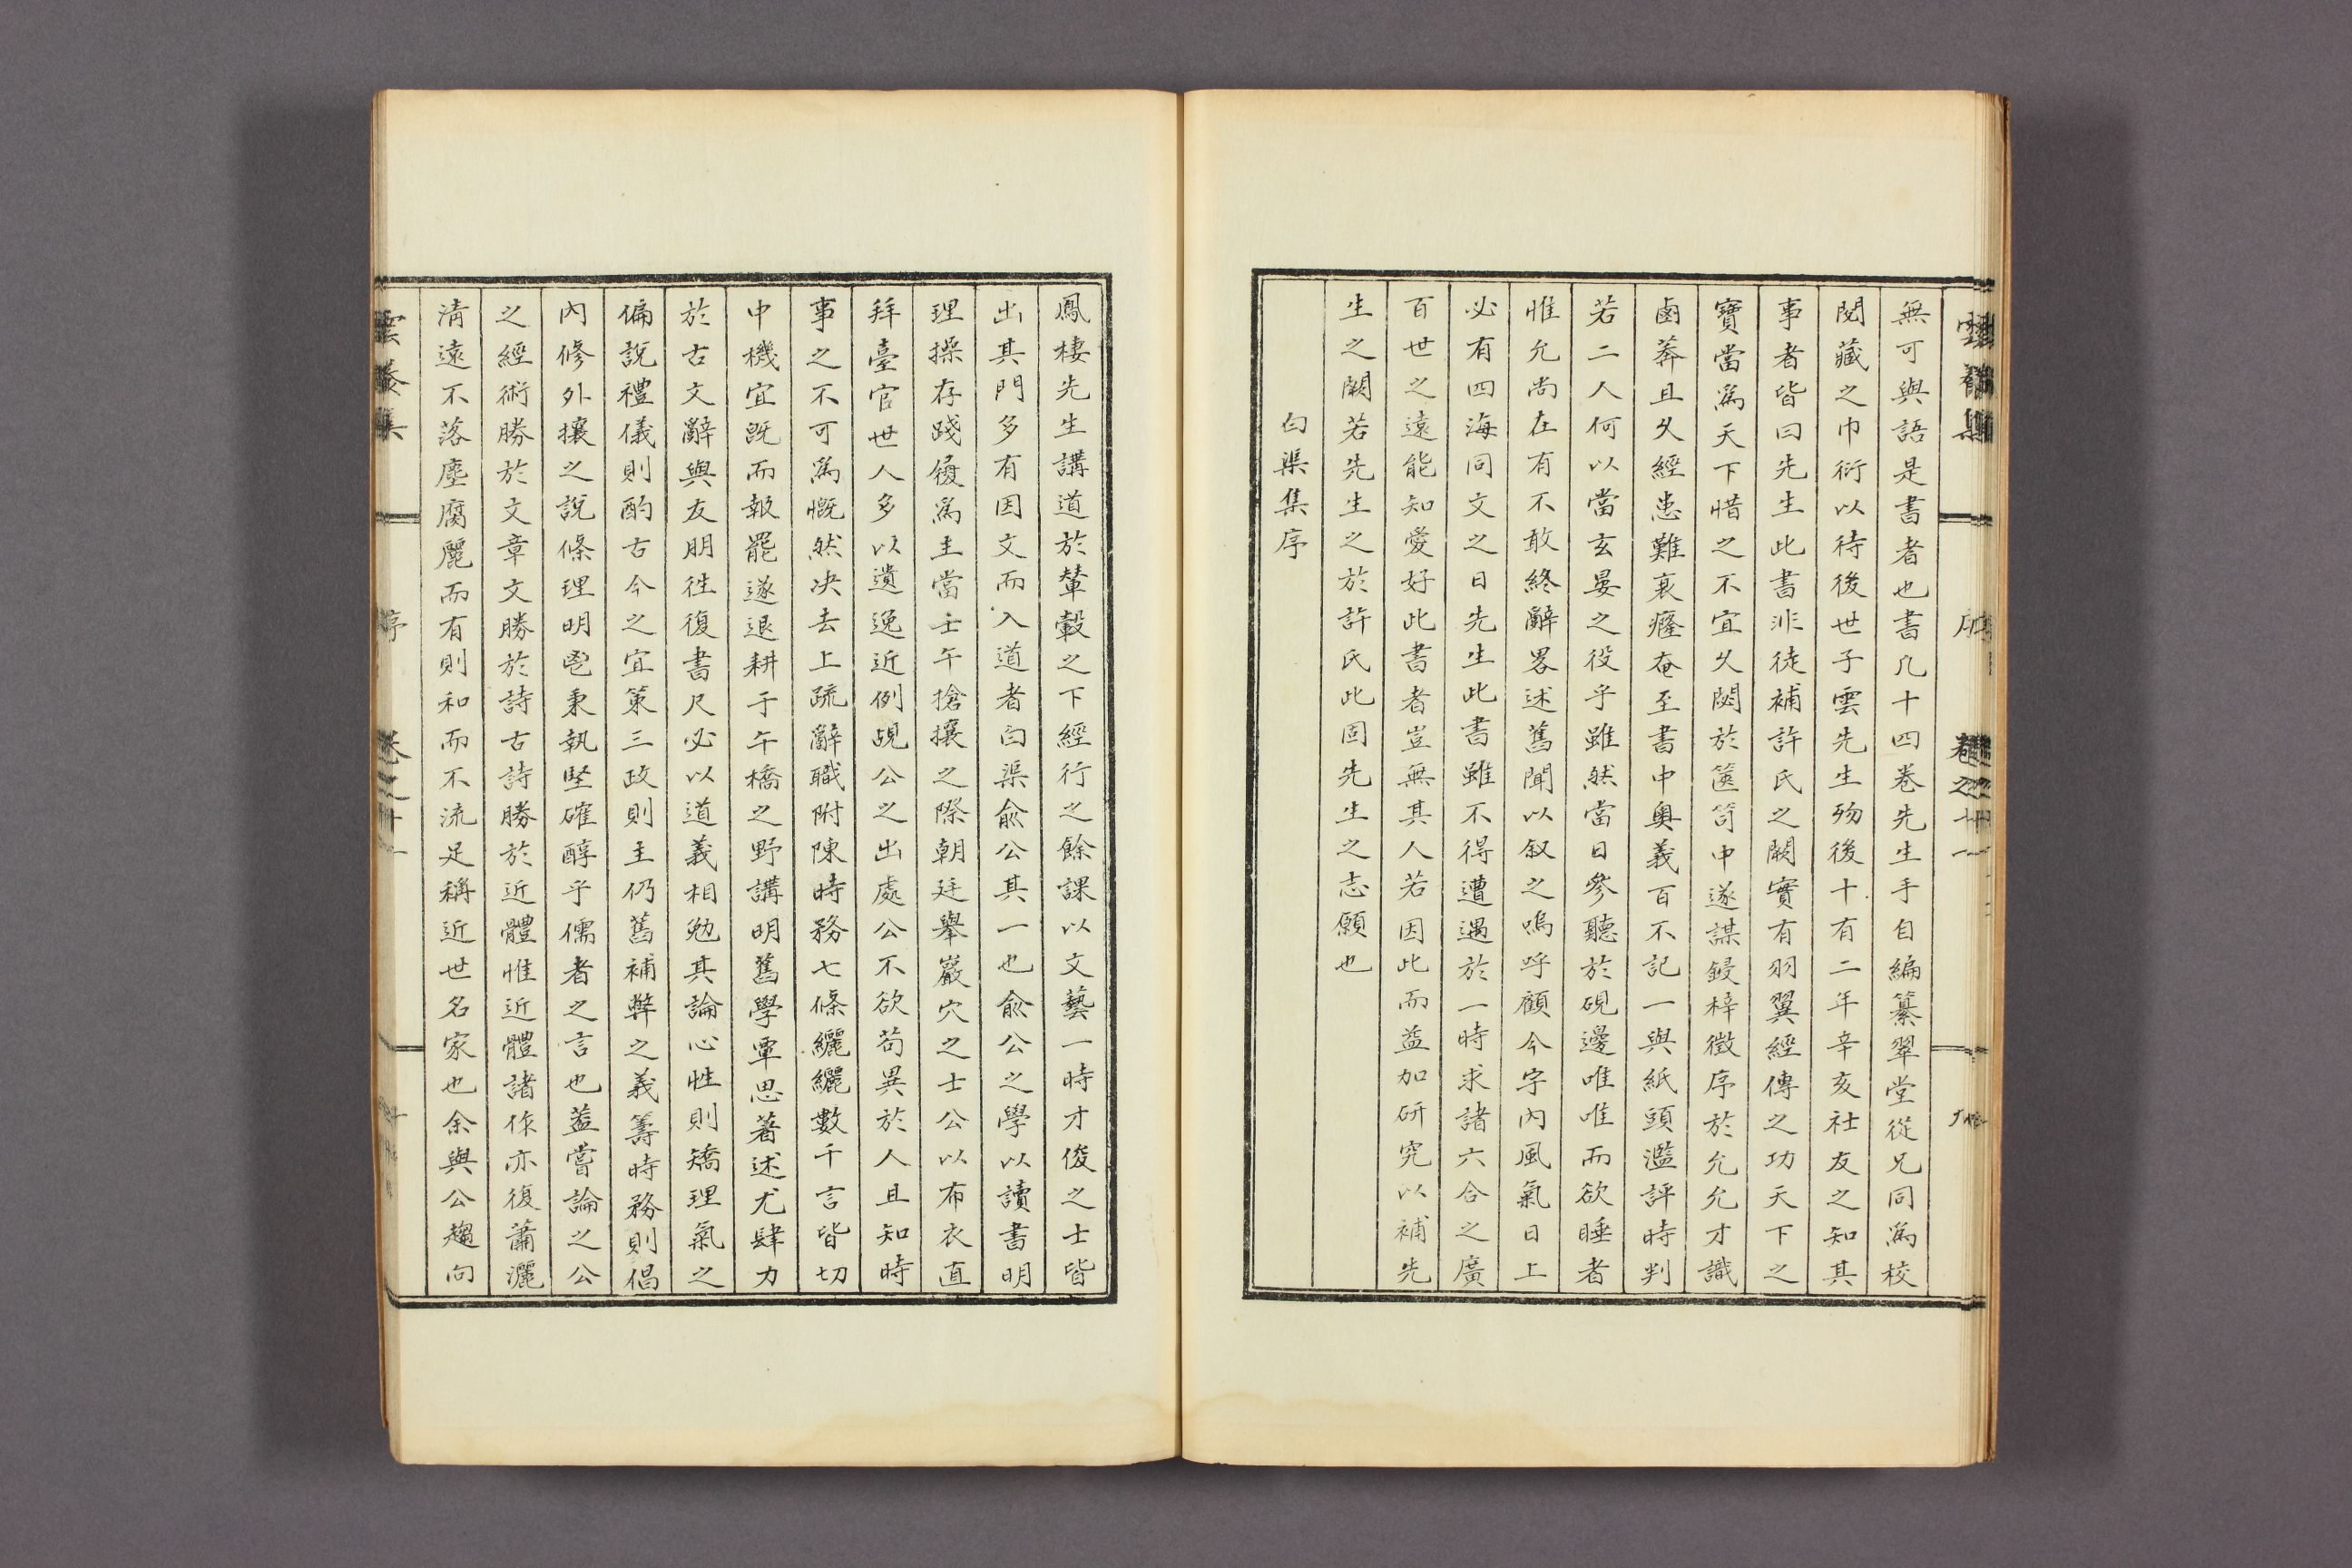 無可與語是書者也書凡十四卷先生手自編纂翠堂從兄同爲校
閱藏之巾衍以待後世子雲先生歿後十有二年辛亥社友之知其
事者皆曰先生此書非徒補許氏之闕實有羽翼經傳之功天下之
寶當爲天下惜之不宜久閟於篋笥中遂謀鋟梓徵序於允允才識
鹵莽且久經患難衰癃奄至書中奧義百不記一與紙頭濫評時判
若二人何以當玄晏之役乎雖然當日參聽於硯邊唯唯而欲睡者
惟允尚在有不敢終辭畧述舊聞以叙之嗚呼顧今宇內風氣日上
必有四海同文之日先生此書雖不得遭遇於一時求諸六合之廣
百世之遠能知愛好此書者豈無其人若因此而益加研究以補先
生之闕若先生之於許氏此固先生之志願也
白渠集序
鳳棲先生講道於輦轂之下經行之餘課以文藝一時才俊之士皆
出其門多有因文而入道者白渠兪公其一也兪公之學以讀書明
理操存踐履爲主當壬午搶攘之際朝廷舉巖穴之士公以布衣直
拜臺官世人多以遺逸近例覘公之出處公不欲苟異於人且知時
事之不可爲慨然决去上疏辭職附陳時務七條纚纚數千言皆切
中機宜旣而報罷遂退耕于午橋之野講明舊學覃思著述尤肆力
於古文辭與友朋徃復書尺必以道義相勉其論心性則矯理氣之
偏說禮儀則酌古今之宜策三政則主仍舊補弊之義籌時務則倡
內修外攘之說條理明鬯秉執堅確醇乎儒者之言也蓋嘗論之公
之經術勝於文章文勝於詩古詩勝於近體惟近體諸作亦復蕭灑
淸遠不落塵腐麗而有則和而不流足稱近世名家也余與公趨向
雲養集
序
卷之十